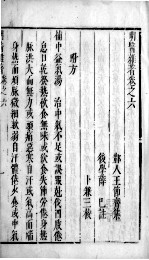 明醫雜著卷之六
鄞人王節齋集
後學薛己註
卜兼三校
附方
補中益氣湯　治中氣不足或誤服尅伐四肢倦
怠口乾發熱飲食無味或飲食失節勞倦身熱
脈洪大而無力或頭痛惡寒自汗或氣高而喘
身熱而煩脈微細軟弱自汗體倦少食或中氣